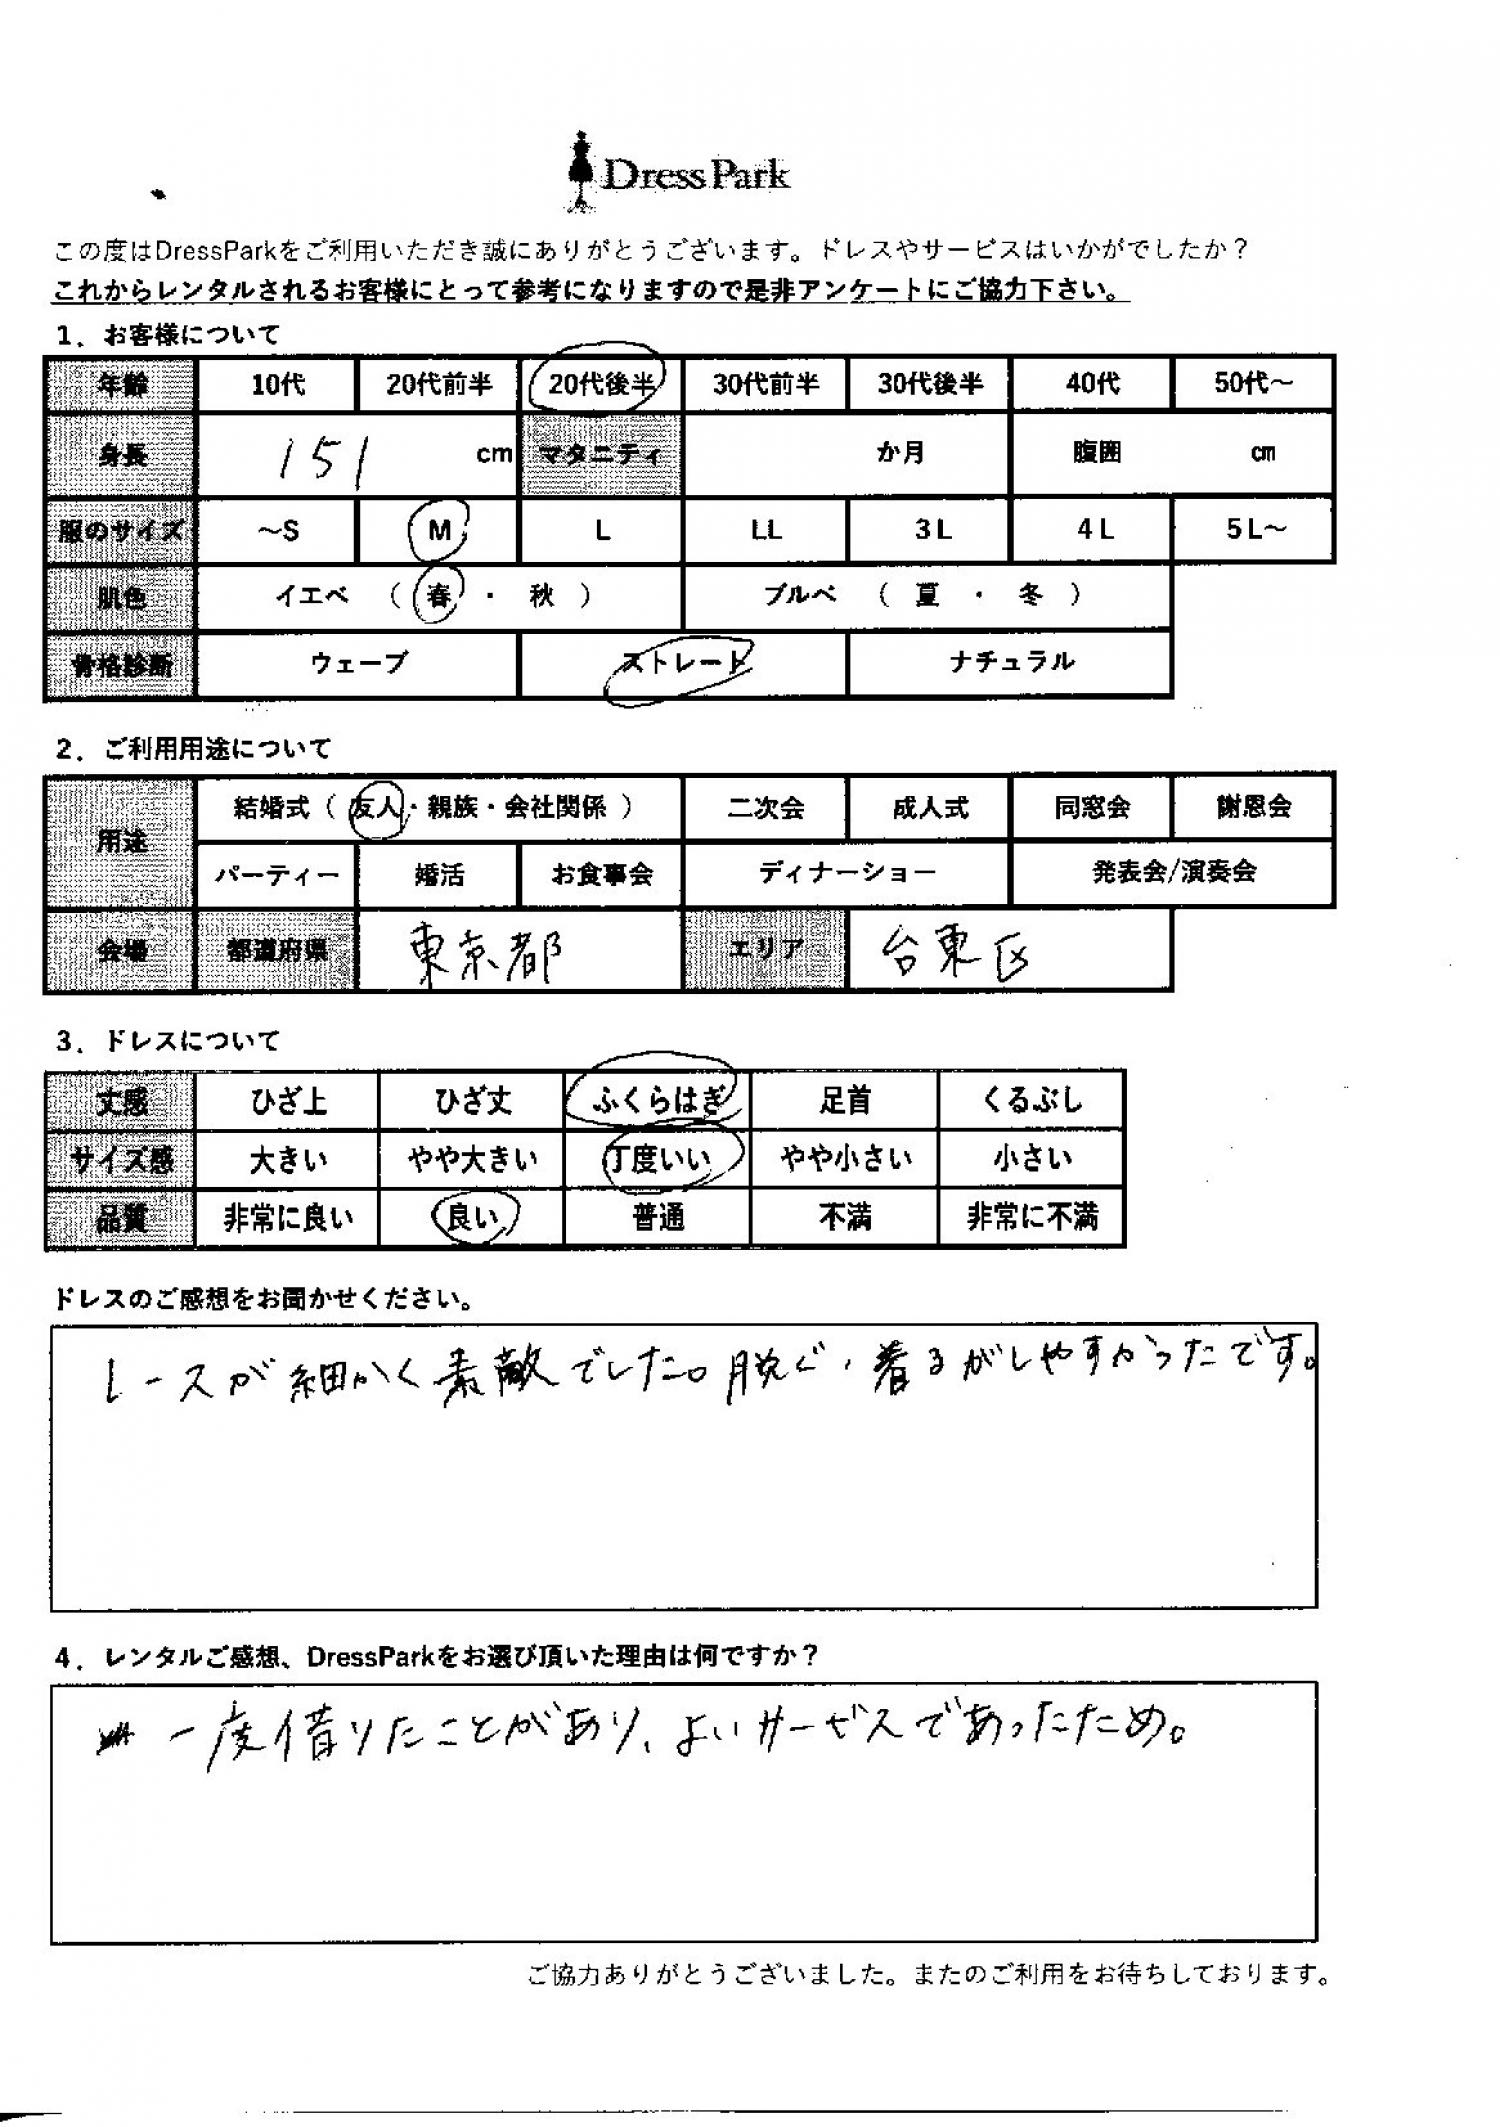 Dress Park
この度はDressParkをご利用いただき誠にありがとうございます。ドレスやサービスはいかがでしたか？
これからレンタルされるお客様にとって参考になりますので是非アンケートにご協力下さい。
1．お客様について
年齢 10代 20代前半 20代後半 30代前半 30代後半 40代 50代～
身長 151 cm マタニティ か月 腹囲 cm
服のサイズ ～S M L LL 3L 4L 5L～
肌色 イエベ （ 春 ・ 秋 ） ブルベ （ 夏 ・ 冬 ）
骨格診断 ウェーブ ストレート ナチュラル
2．ご利用用途について
用途 結婚式（ 友人・親族・会社関係 ） 二次会 成人式 同窓会 謝恩会
パーティー 婚活 お食事会 ディナーショー 発表会/演奏会
会場 都道府県 東京都 エリア 台東区
3．ドレスについて
丈感 ひざ上 ひざ丈 ふくらはぎ 足首 くるぶし
サイズ感 大きい やや大きい 丁度いい やや小さい 小さい
品質 非常に良い 良い 普通 不満 非常に不満
ドレスのご感想をお聞かせください。
レースが細かく素敵でした。脱ぐ、着るがしやすかったです。
4．レンタルご感想、DressParkをお選び頂いた理由は何ですか？
一度借りたことがあり、よいサービスであったため。
ご協力ありがとうございました。またのご利用をお待ちしております。